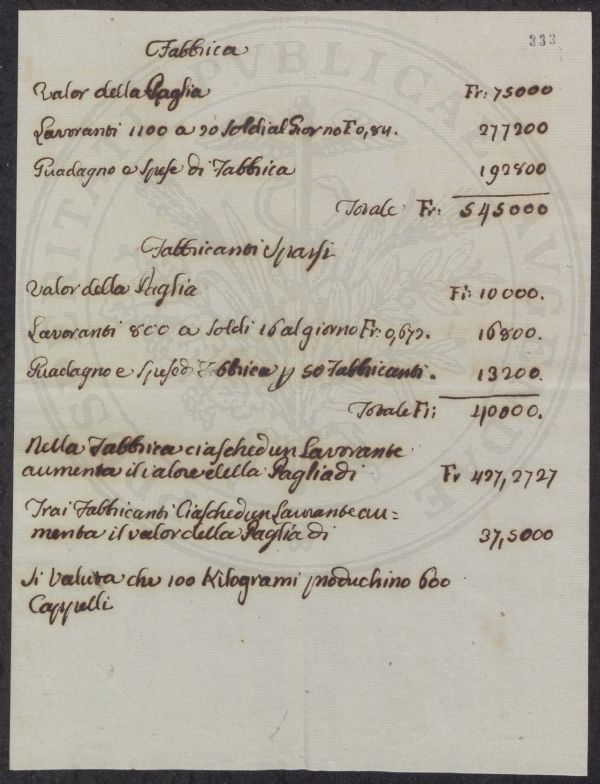 333
Fabbrica
Valor della Paglia Fr: 75000
Lavoranti 1100 a 20 Soldi al Giorno F 0,84. 277200
Guadagno e Spese di Fabbrica 192800
Totale Fr: 545000
Fabbricanti Sparsi
Valor della Paglia Fr: 10000.
Lavoranti 800 a Soldi 16 al giorno Fr: 0,672. 16800.
Guadagno e Spese di Fabbrica p 50 Fabbricanti. 13200.
Totale Fr: 40000.
Nella Fabbrica ciaschedun Lavorante
aumenta il valore della Paglia di Fr 427,2727
Trai Fabbricanti Ciaschedun Lavorante au=
menta il valor della Paglia di 37,5000
Si Valuta che 100 Kilogrami produchino 600
Cappelli